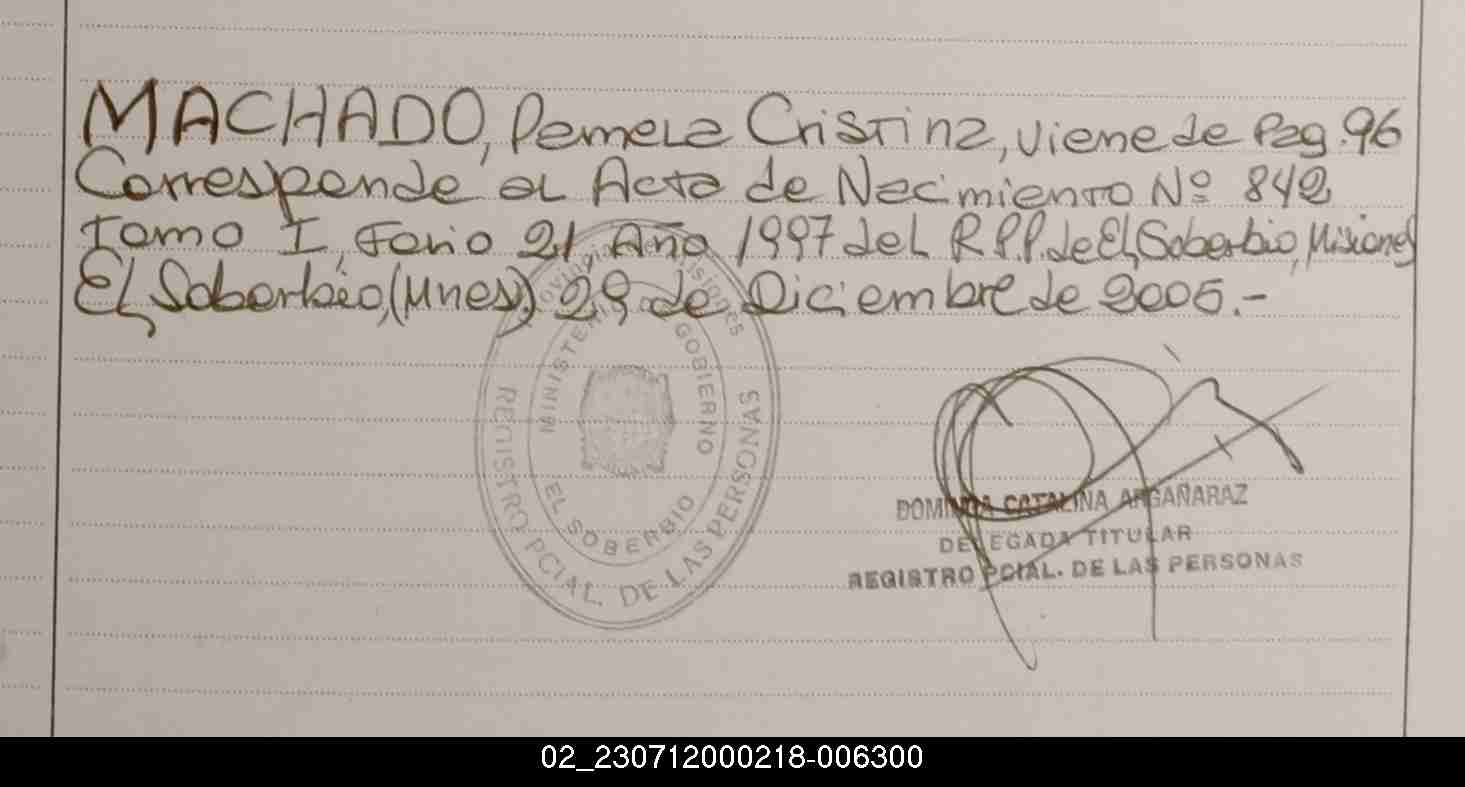 MACHADO, Pamela Cristina, viene de Pag. 96
Corresponde al Acta de Nacimiento Nº 842
Tomo I, Folio 21, Año 1997 del R.P.P. de El Soberbio, Misiones
El Soberbio, (Mnes). 29 de Diciembre de 2005.-
Provincia de Misiones
MINISTERIO GOBIERNO
EL SOBERBIO
REGISTRO PCIAL. DE LAS PERSONAS
CATALINA ARGAÑARAZ
DELEGADA TITULAR
REGISTRO PCIAL. DE LAS PERSONAS
02_230712000218-006300